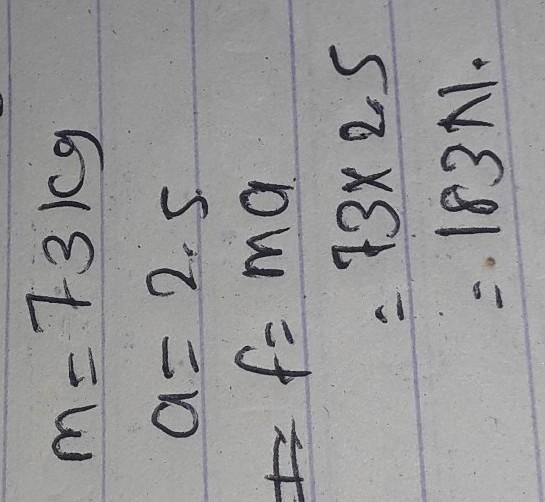 m = 73 kg
a = 2.5
f = ma
= 73 x 2.5
= 183 N.